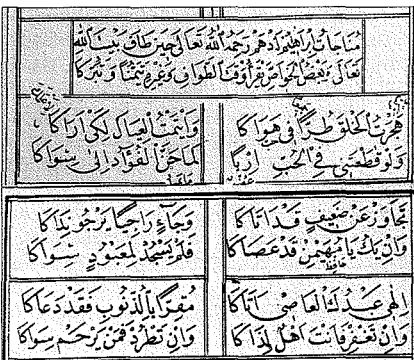 مناجات ابراهيم ادهم رحمه الله تعالى حين طاف ببيت الله
تعالى وبعض الخواص نقرأ وقت الطواف وغيره تيمنا وتبركا
هجرت الخلق طرا في هواكا وايتمت العيال لكي اراكا
ولو قطعتني في الحب اربا لما حن الفؤاد الى سواكا
تجاوز عن ضعيف قد اتاكا وجاء راجيا يرجو نداكا
وان يك يا مهيمن قد عصاكا فلم يسجد لمعبود سواكا
الهي عبدك العاصي اتاكا مقرا بالذنوب فقد دعاكا
وان تغفر فانت اهل لذاكا وان تطرد فمن يرحم سواكا